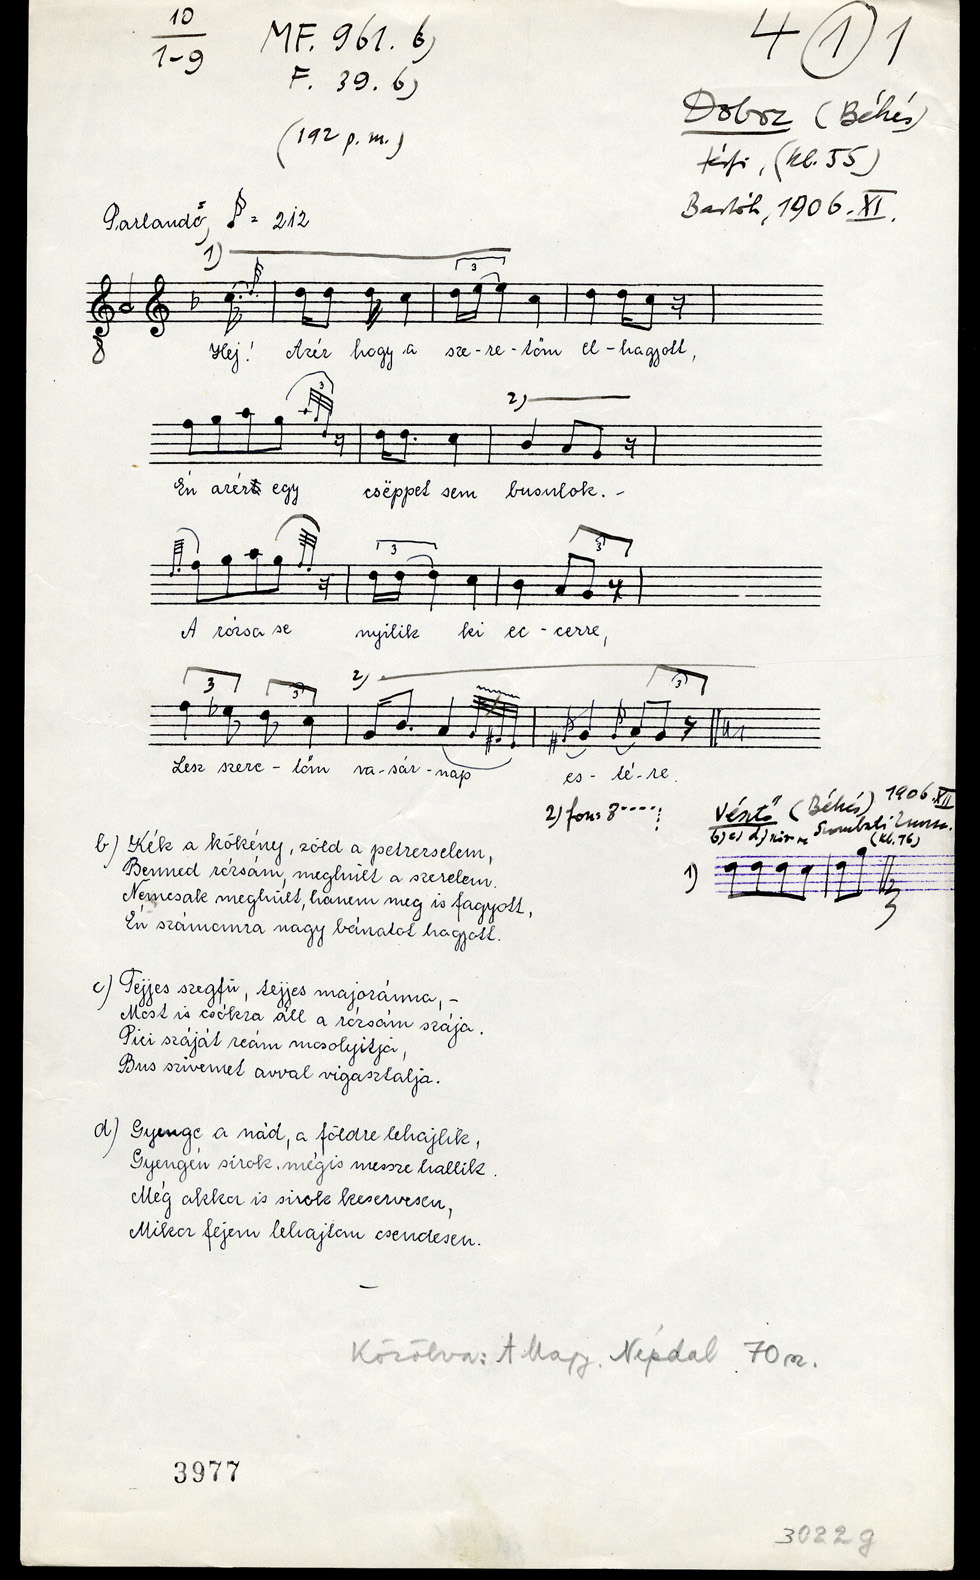 10
1-9
MF. 961. b)
F. 39. b)
(192 p. m.)
4 1 1
Doboz (Békés)
férfi, (kb. 55)
Bartók, 1906. XI.
Parlando, = 212
1)
3
Hej! Azér hogy a sze-re-tőm el-hagyott,
3
2)
Én azért egy cséppet sem busulok. -
3 3
A rózsa se nyilik ki ec-cerre,
3 3 2) 3
Lesz szere-tőm va-sár-nap es-té-re.
2) fon: 8
Vésztő (Békés) 1906. XII
b) c) d)
(kb. 76)
1)
b) Kék a kökény, zöld a petrezselem,
Benned rózsám, meghült a szerelem.
Nemcsak meghült, hanem meg is fagyott,
Én számomra nagy bánatot hagyott.
c) Tejjes szegfü, tejjes majoránna, -
Most is csókra áll a rózsám szája.
Pici száját reám mosolyitja,
Bus szivemet avval vigasztalja.
d) Gyenge a nád, a földre lehajlik,
Gyengén sirok, mégis messze hallik.
Még akkor is sirok keservesen,
Mikor fejem lehajtom csendesen.
-
Közölve: A Magy. Népdal 70 sz.
3977
3022 g